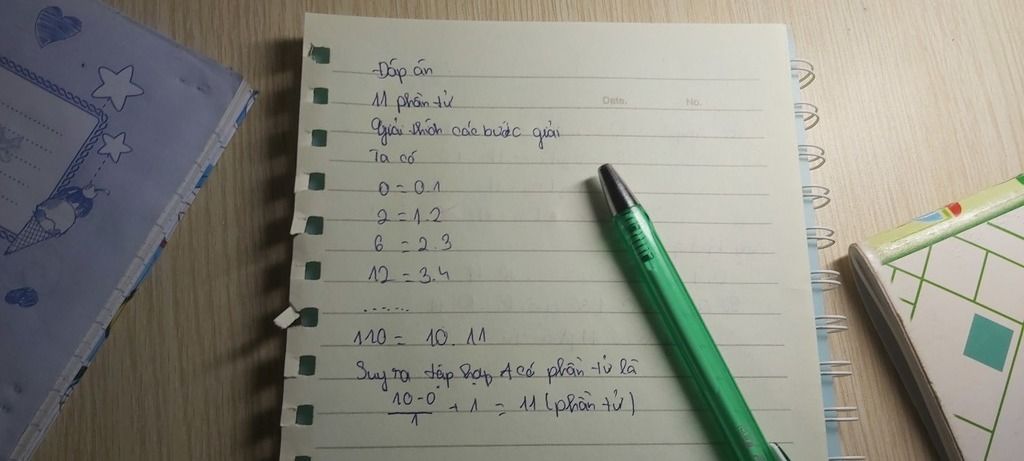 Đáp án
11 phần tử
Date. No.
Giải thích các bước giải
Ta có
0 = 0.1
2 = 1.2
6 = 2.3
12 = 3.4
.......
110 = 10.11
Suy ra tập hợp A có phần tử là
10-0/1 + 1 = 11 (phần tử)